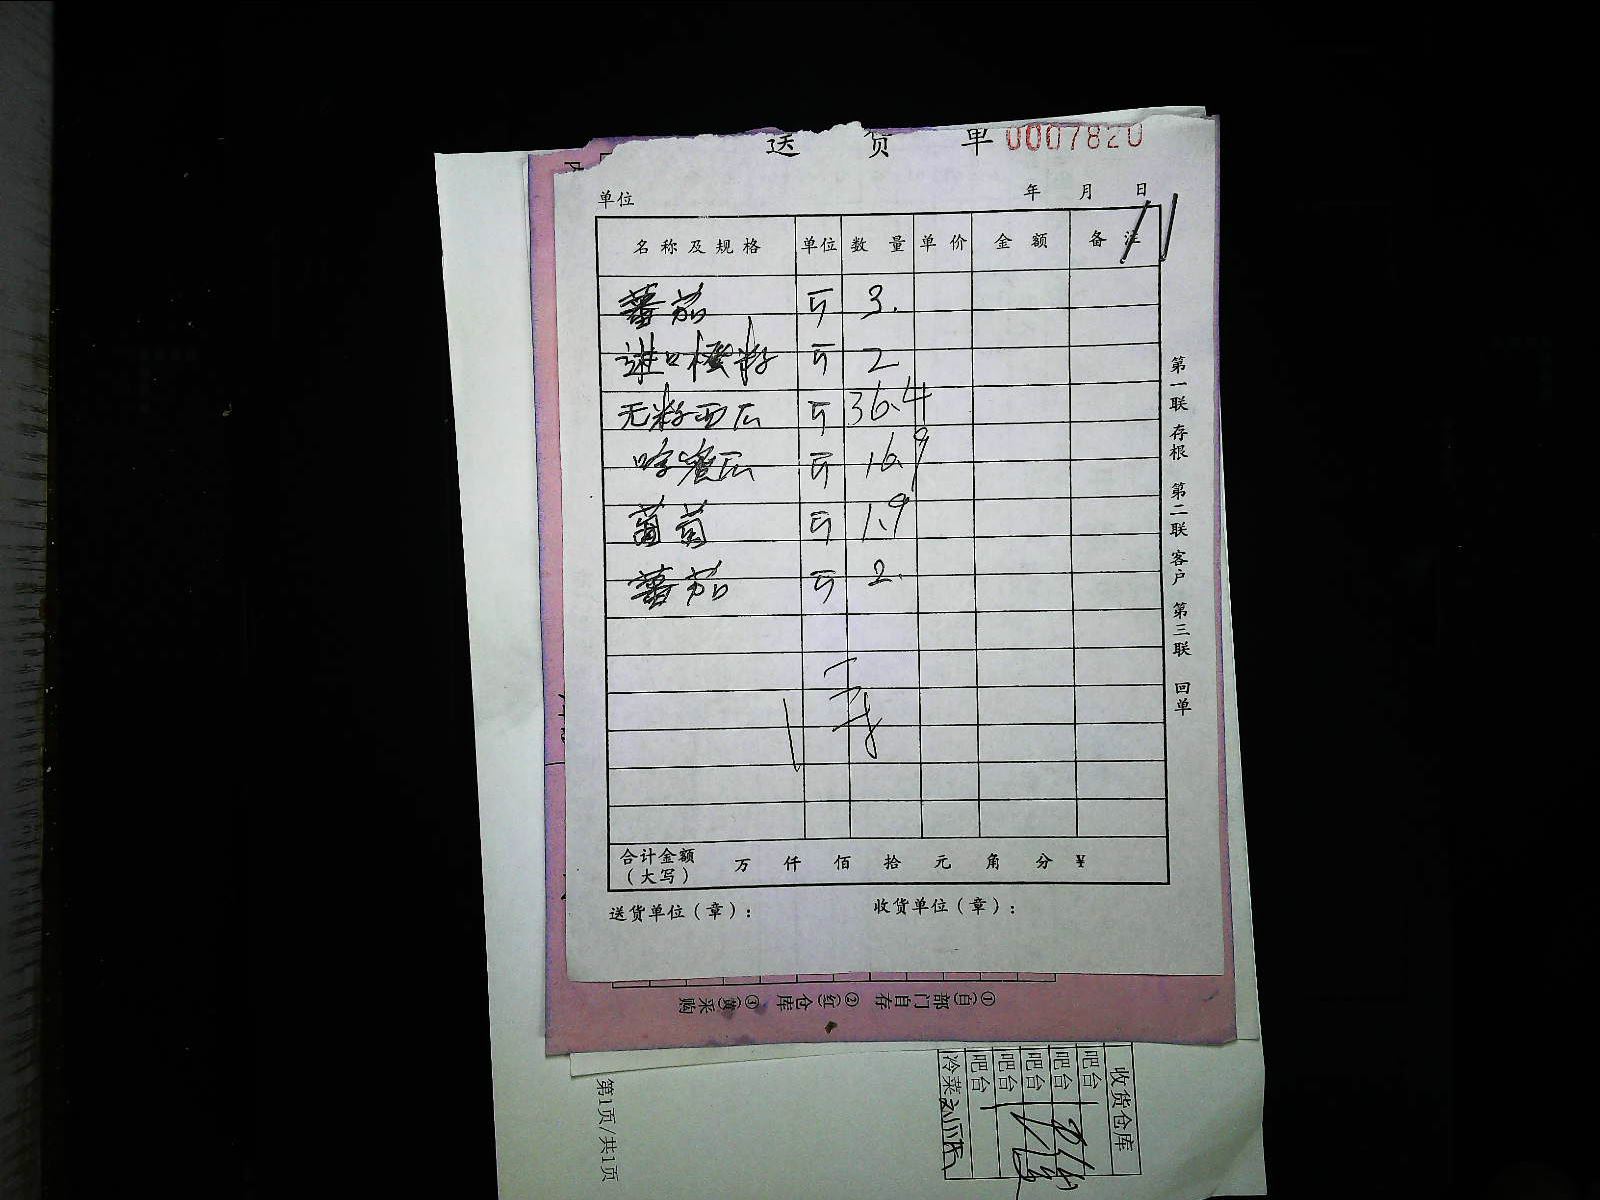 送 货 单 0007820
单位 年 月 日
名称及规格 单位 数量 单价 金额 备注
蕃茄 斤 3.
进口橙籽 斤 2
无籽西瓜 斤 36.4
哈密瓜 斤 16.9
葡萄 斤 1.9
蕃茄 斤 2.
合计金额(大写) 万 仟 佰 拾 元 角 分 ¥
送货单位(章): 收货单位(章):
第一联 存根 第二联 客户 第三联 回单
①(白)部门自存 ②(红)仓库 ③(黄)采购
收货仓库
吧台
吧台
吧台
吧台
吧台
冷菜
第1页/共1页